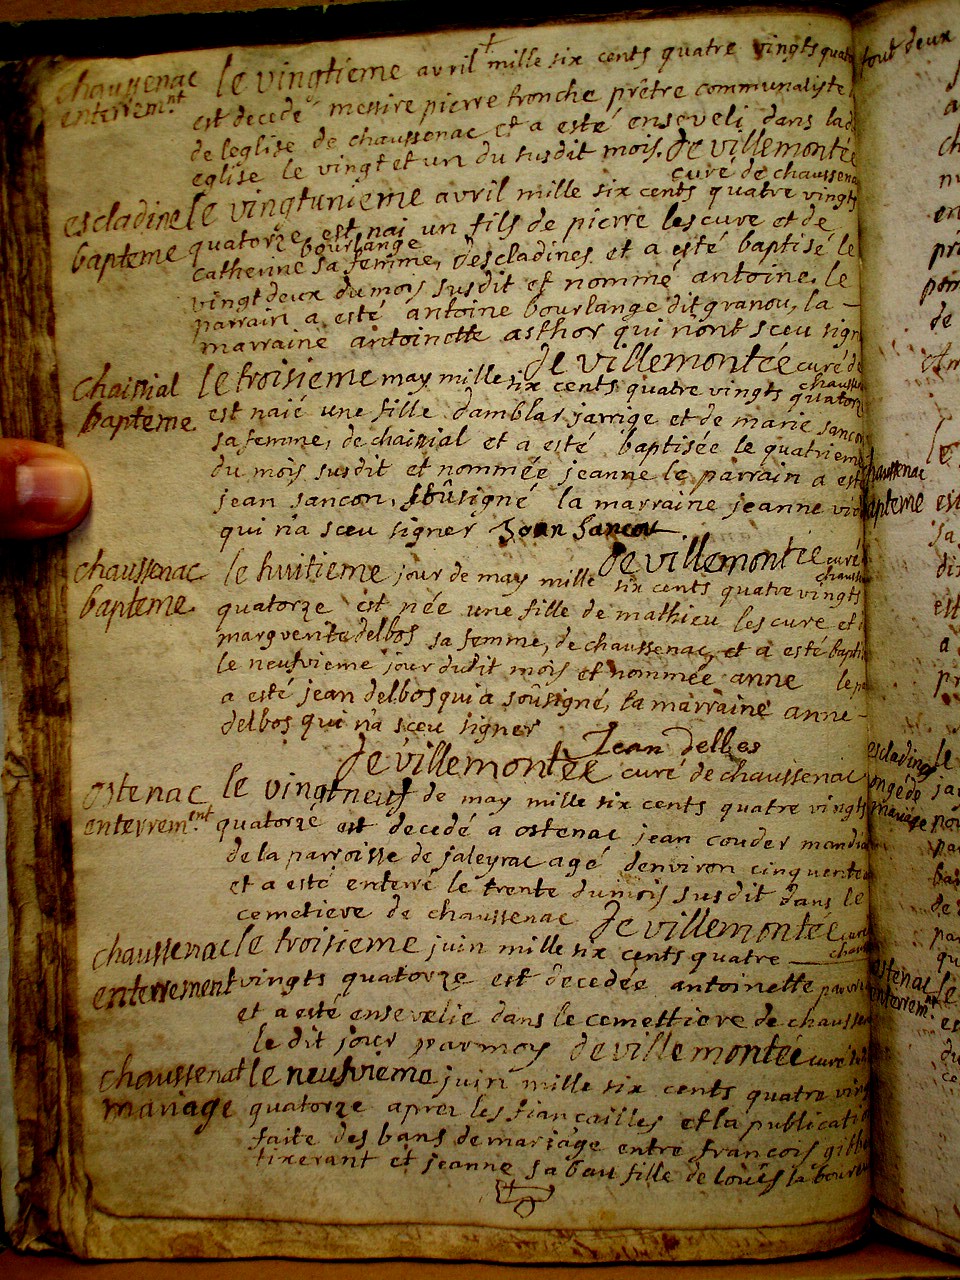 chaussenac
enterrem.nt
le vingtieme avril mille six cents quatre vingts quator
est decedé messire pierre tronche prêtre communaliste
de leglise de chaussenac et a esté enseveli dans lad
eglise le vingt et un du susdit mois. de villemontée
curé de chaussenac
escladine
bapteme
le vingtunieme avril mille six cents quatre vingts
quatorze est nai un fils de pierre lescure et de
catherine bourlange sa femme, descladines et a esté baptisé le
vingt deux du mois susdit et nommé antoine. le
parrain a esté antoine bourlange dit granou, la
marraine antoinette asthor qui n'ont sceu sign
de villemontée curé de
chausse
chainial
bapteme
le troisieme may mille six cents quatre vingts quatorz
est naié une fille damblar jarrige et de marie sancou
sa femme, de chainial et a esté baptisée le quatrieme
du mois susdit et nommée jeanne le parrain a esté
jean sancou, soûsigné la marraine jeanne
qui na sceu signer Jean Sancou
de villemontée curé
chausse
chaussenac
bapteme
le huitieme jour de may mille six cents quatre vingts
quatorze est née une fille de mathieu lescure et
marguerite delbos sa femme, de chaussenac, et a esté bapti
le neufvieme jour dudit mois et nommée anne le
a esté jean delbos qui a soûsigné, la marraine anne
delbos qui n'a sceu signer
Jean Delbos
de villemontée curé de chaussenac
ostenac
enterrem.nt
le vingtneuf de may mille six cents quatre vingts
quatorze est decedé a ostenac jean couder mandia
de la parroisse de jaleyrac agé denviron cinquente
et a esté enterré le trente du mois susdit dans le
cemetiere de chaussenac de villemontée curé
chaussenac
enterrement
le troisieme juin mille six cents quatre
vingts quatorze est decedée antoinette
et a esté ensevelie dans le cemettiere de chausse
le dit jour par moy de villemontée curé
chaussenat
mariage
le neufvieme juin mille six cents quatre ving
quatorze aprez les fiançailles et la publicati
faite des bans de mariage entre françois
tixerant et jeanne sabau fille de louis
tout deux
chaussenac
bapteme
escladine
mariage
ostenac
enterrem.nt